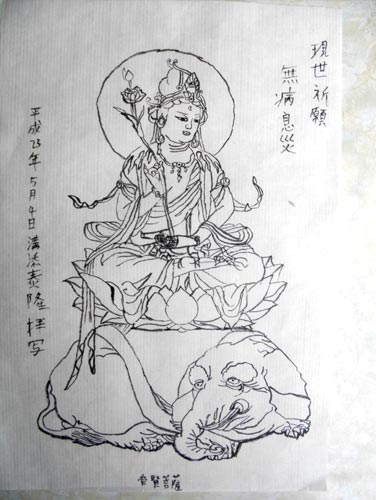 現世祈願
無病息災
平成23年5月4日溝添泰隆拝写
普賢菩薩